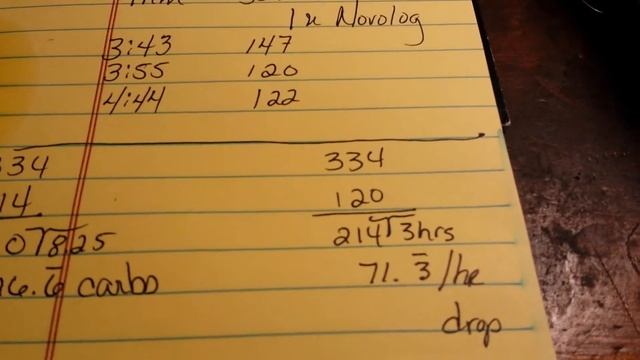 1u Novolog
3:43 147
3:55 120
4:44 122
334 334
14 120
07825 214√3hrs
6.6̅ carbo 71.3̅/hr
drop